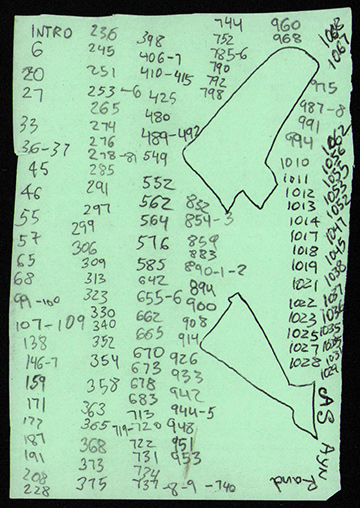 INTRO
6
20
27
33
36-37
45
46
55
57
65
68
99-100
107-109
138
146-7
159
171
177
187
191
208
228
236
245
251
253-6
265
274
276
278-81
285
291
297
299
306
309
313
323
330
340
352
354
358
363
365
368
373
375
398
406-7
410-415
425
480
489-492
549
552
562
564
576
585
642
655-6
662
665
670
673
678
683
713
719-720
722
731
734
737-8-9-740
744
752
785-6
790
792
798
852
854-3
859
883
890-1-2
894
900
908
914
926
933
942
944-5
948
951
953
960
968
975
987-8
991
994
1010
1011
1012
1013
1014
1017
1018
1019
1021
1022
1023
1025
1027
1028
1067
AS Ayn
Rand